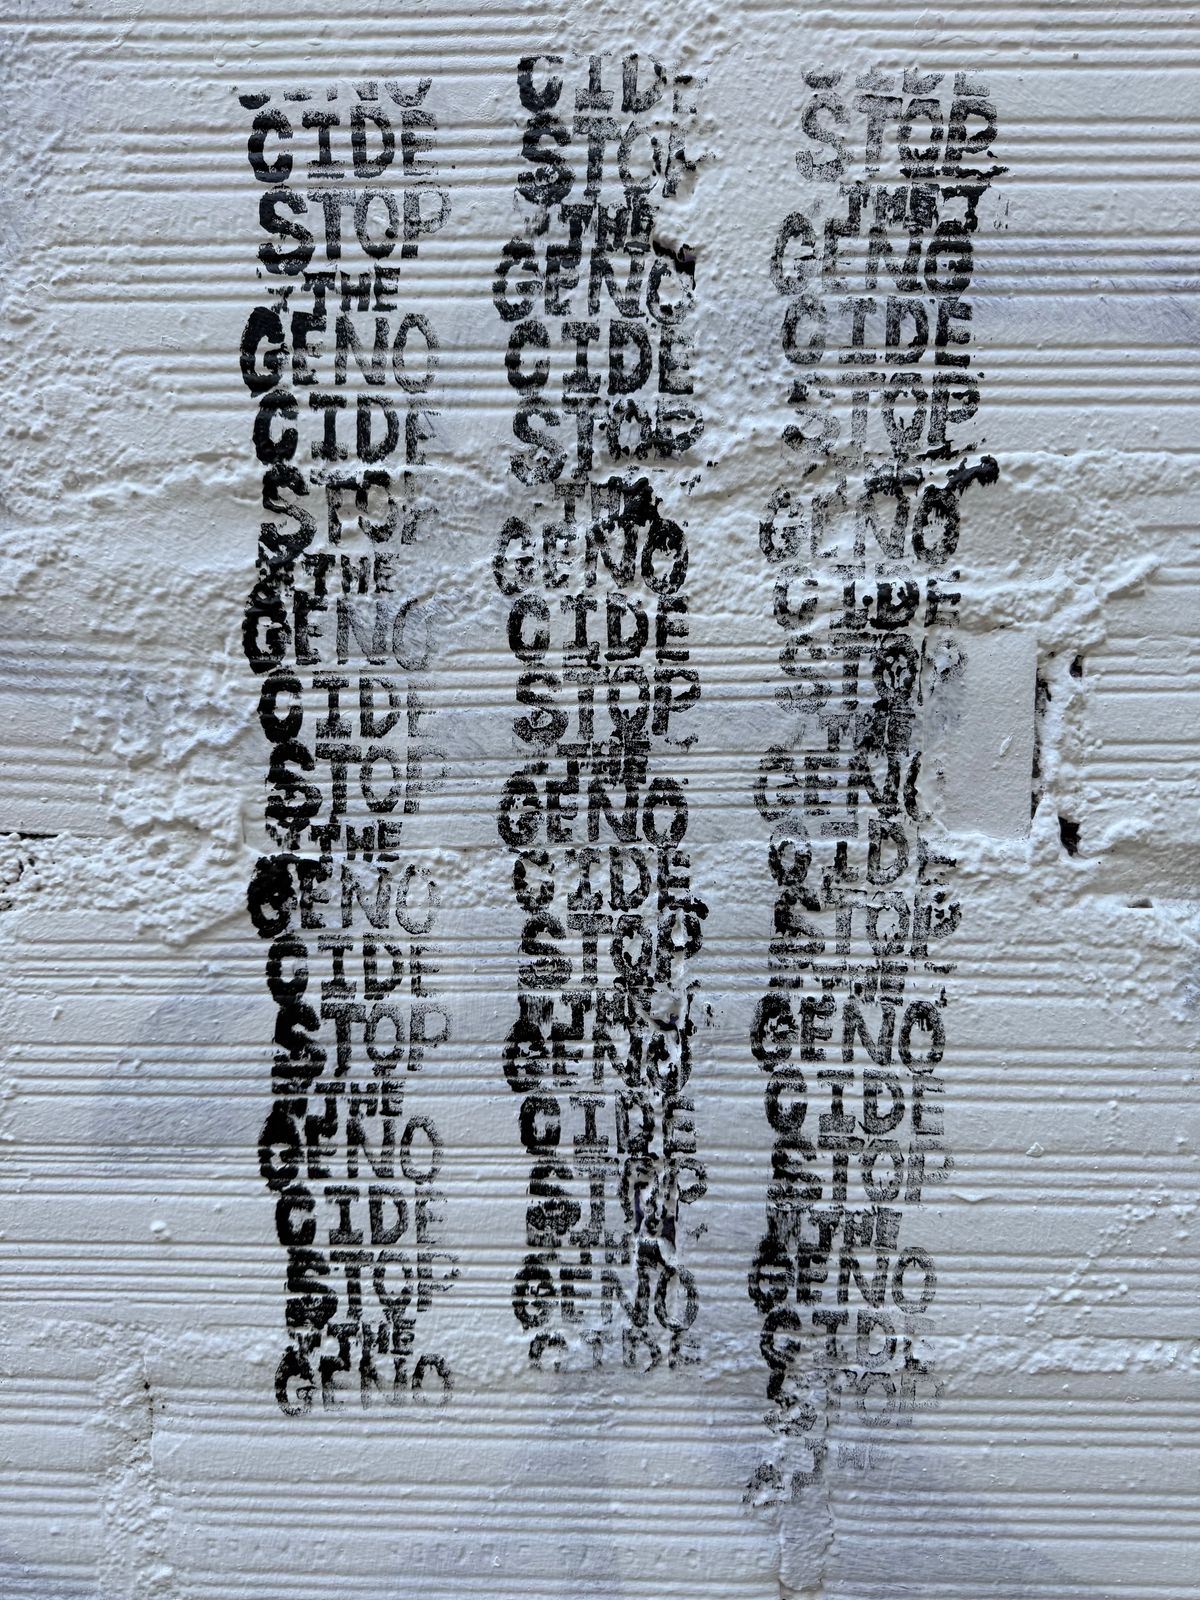 CIDE
STOP
THE
GENO
CIDE
STOP
THE
GENO
CIDE
STOP
THE
GENO
CIDE
STOP
THE
GENO
CIDE
STOP
THE
GENO
CIDE
STOP
THE
GENO
CIDE
STOP
THE
GENO
CIDE
STOP
THE
GENO
CIDE
STOP
THE
GENO
CIDE
STOP
GENO
CIDE
STOP
THE
GENO
CIDE
STOP
GENO
CIDE
STOP
THE
GENO
CIDE
STOP
THE
GENO
CIDE
STOP
THE
GENO
CIDE
STOP
THE